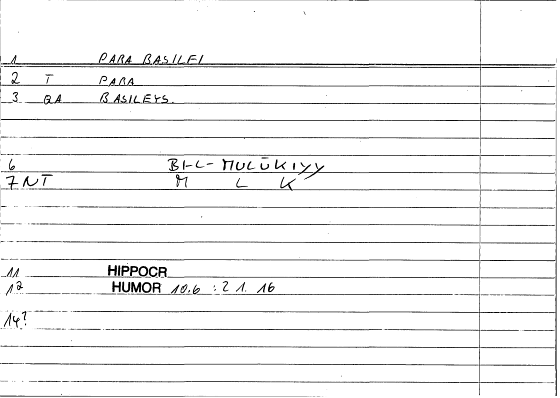 1 PARA BASILEI
2 T PARA
3 QA BASILEYS.
6 BI-L-MULŪKIYY
7 NT M L K
11 HIPPOCR
12 HUMOR 10.6 : 21. 16
14?